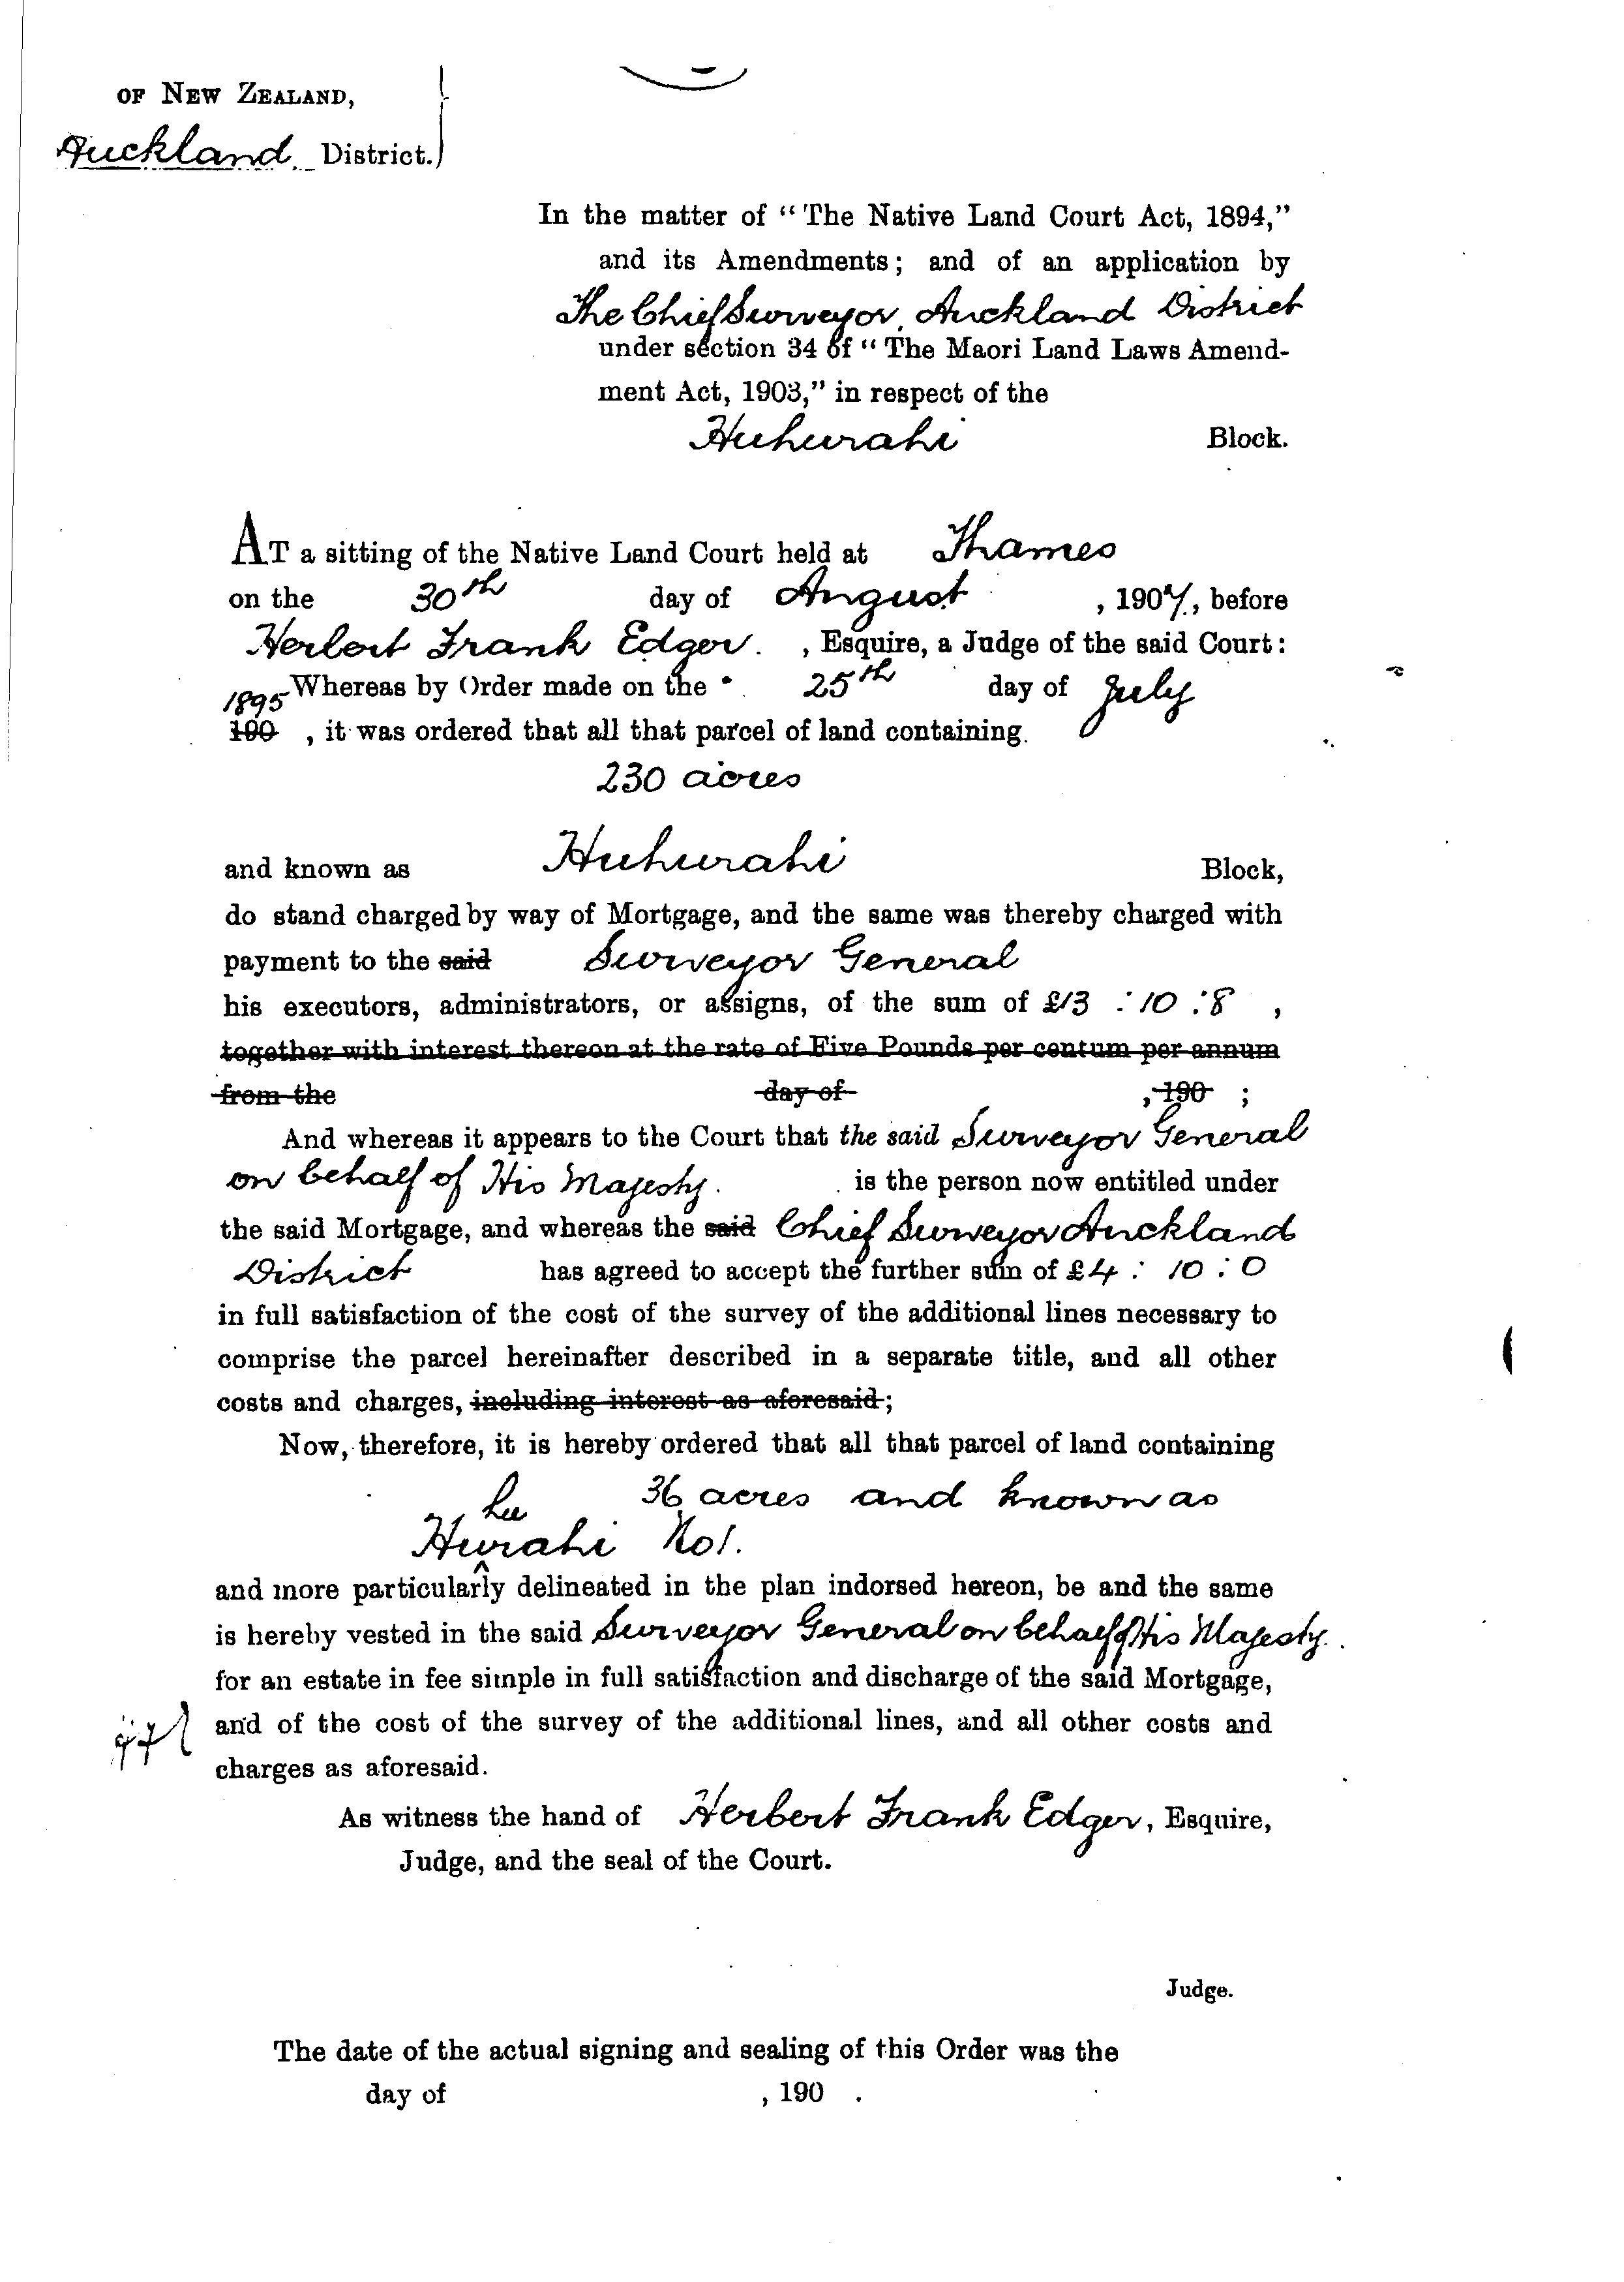 OF NEW ZEALAND,
Auckland District.
In the matter of “The Native Land Court Act, 1894,”
and its Amendments; and of an application by
The Chief Surveyor, Auckland District
under section 34 of “The Maori Land Laws Amend-
ment Act, 1903,” in respect of the
Huhurahi Block.
AT a sitting of the Native Land Court held at Thames
on the 30th day of August , 1907, before
Herbert Frank Edger. , Esquire, a Judge of the said Court:
Whereas by Order made on the 25th day of July
1895
190 , it was ordered that all that parcel of land containing
230 acres
and known as Huhurahi Block,
do stand charged by way of Mortgage, and the same was thereby charged with
payment to the said Surveyor General
his executors, administrators, or assigns, of the sum of £13 : 10 : 8 ,
together with interest thereon at the rate of Five Pounds per centum per annum
from the day of , 190 ;
And whereas it appears to the Court that the said Surveyor General
on behalf of His Majesty. is the person now entitled under
the said Mortgage, and whereas the said Chief Surveyor Auckland
District has agreed to accept the further sum of £4 : 10 : 0
in full satisfaction of the cost of the survey of the additional lines necessary to
comprise the parcel hereinafter described in a separate title, and all other
costs and charges, including interest as aforesaid;
Now, therefore, it is hereby ordered that all that parcel of land containing
36 acres and known as
hu
Hurahi No 1.
and more particularly delineated in the plan indorsed hereon, be and the same
is hereby vested in the said Surveyor General on behalf of His Majesty.
for an estate in fee simple in full satisfaction and discharge of the said Mortgage,
and of the cost of the survey of the additional lines, and all other costs and
charges as aforesaid.
As witness the hand of Herbert Frank Edger, Esquire,
Judge, and the seal of the Court.
Judge.
The date of the actual signing and sealing of this Order was the
day of , 190 .